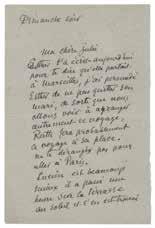 Dimanche soir
Ma chère Julie
Esther t'a écrit aujourd'hui
pour te dire qu'elle partait
à Marseille, j'ai persuadé
Esther de ne pas quitter son
mari, de sorte que nous
allons voir à arranger
autrement ce voyage.
fera probablement
ce voyage à sa place.
ne te dérange pas pour
aller à Paris.
Lucien est beaucoup
mieux il a passé une
heure sur la terrasse
au soleil et s'en est